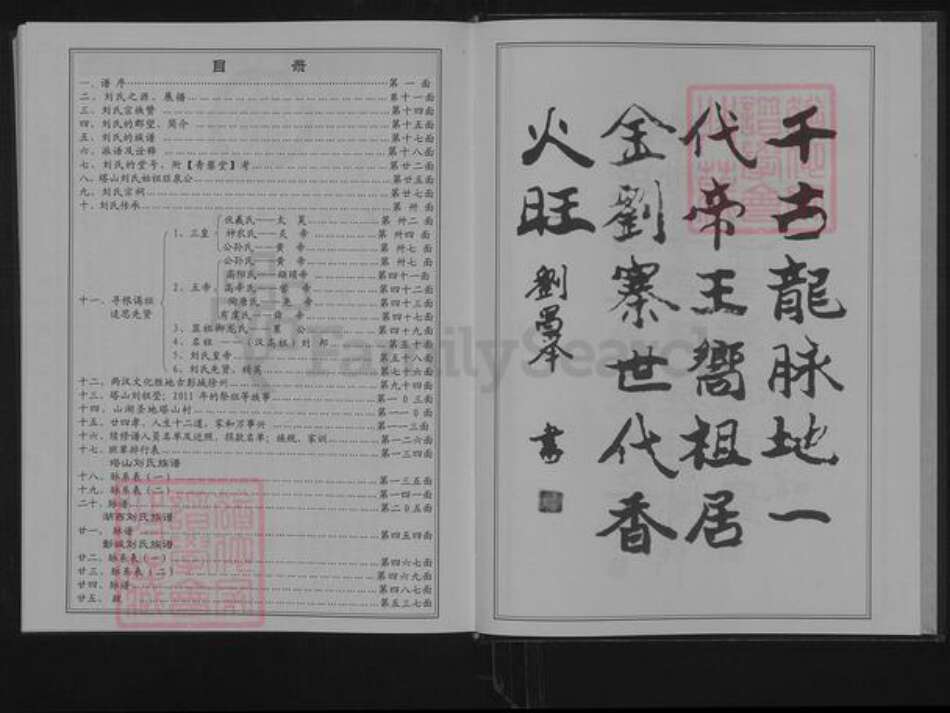 目 录
一、谱序 第一面
二、刘氏之源、展播 第十一面
三、刘氏宗族赞 第十四面
四、刘氏的郡望、简介 第十五面
五、刘氏的族谱 第十七面
六、派语及诠释 第十八面
七、刘氏的堂号，附【青藜堂】考 第廿二面
八、塔山刘氏始祖 泉公 第廿五面
九、刘氏宗祠 第廿七面
十、刘氏传承 第卅面
十一、寻根谒祖 追思先贤
1、三皇
伏羲氏——太昊 第卅二面
神农氏——炎帝 第卅四面
公孙氏——黄帝 第卅七面
2、五帝
公孙氏——黄帝 第卅七面
高阳氏——颛顼帝 第四十一面
高辛氏——喾帝 第四十二面
陶唐氏——尧帝 第四十三面
有虞氏——舜帝 第四十七面
3、显祖御龙氏——累公 第四十九面
4、名祖——（汉高祖）刘邦 第五十面
5、刘氏皇帝 第五十八面
6、刘氏先贤、精英 第七十六面
十二、两汉文化胜地古彭城徐州 第九十四面
十三、塔山刘祖茔；2011年的祭祖等故事 第一0三面
十四、山湖圣地塔山村 第一一0面
十五、廿四孝，人生十二道，家和万事兴 第一一三面
十六、续修谱人员名单及近照，捐款名单；族规、家训 第一二六面
十七、班辈排行表 第一三四面
塔山刘氏族谱
十八、脉系表（一） 第一三五面
十九、脉系表（二） 第一四一面
二十、脉谱 第二0五面
湖西刘氏族谱
廿一、脉谱 第四五四面
彭城刘氏族谱
廿二、脉系表（一） 第四六七面
廿三、脉系表（二） 第四六九面
廿四、脉谱 第四八七面
廿五、跋 第五三七面
千古龍脉地一
代帝王嚮祖居
金劉寨世代香
火旺
劉昌本 書
FamilySearch